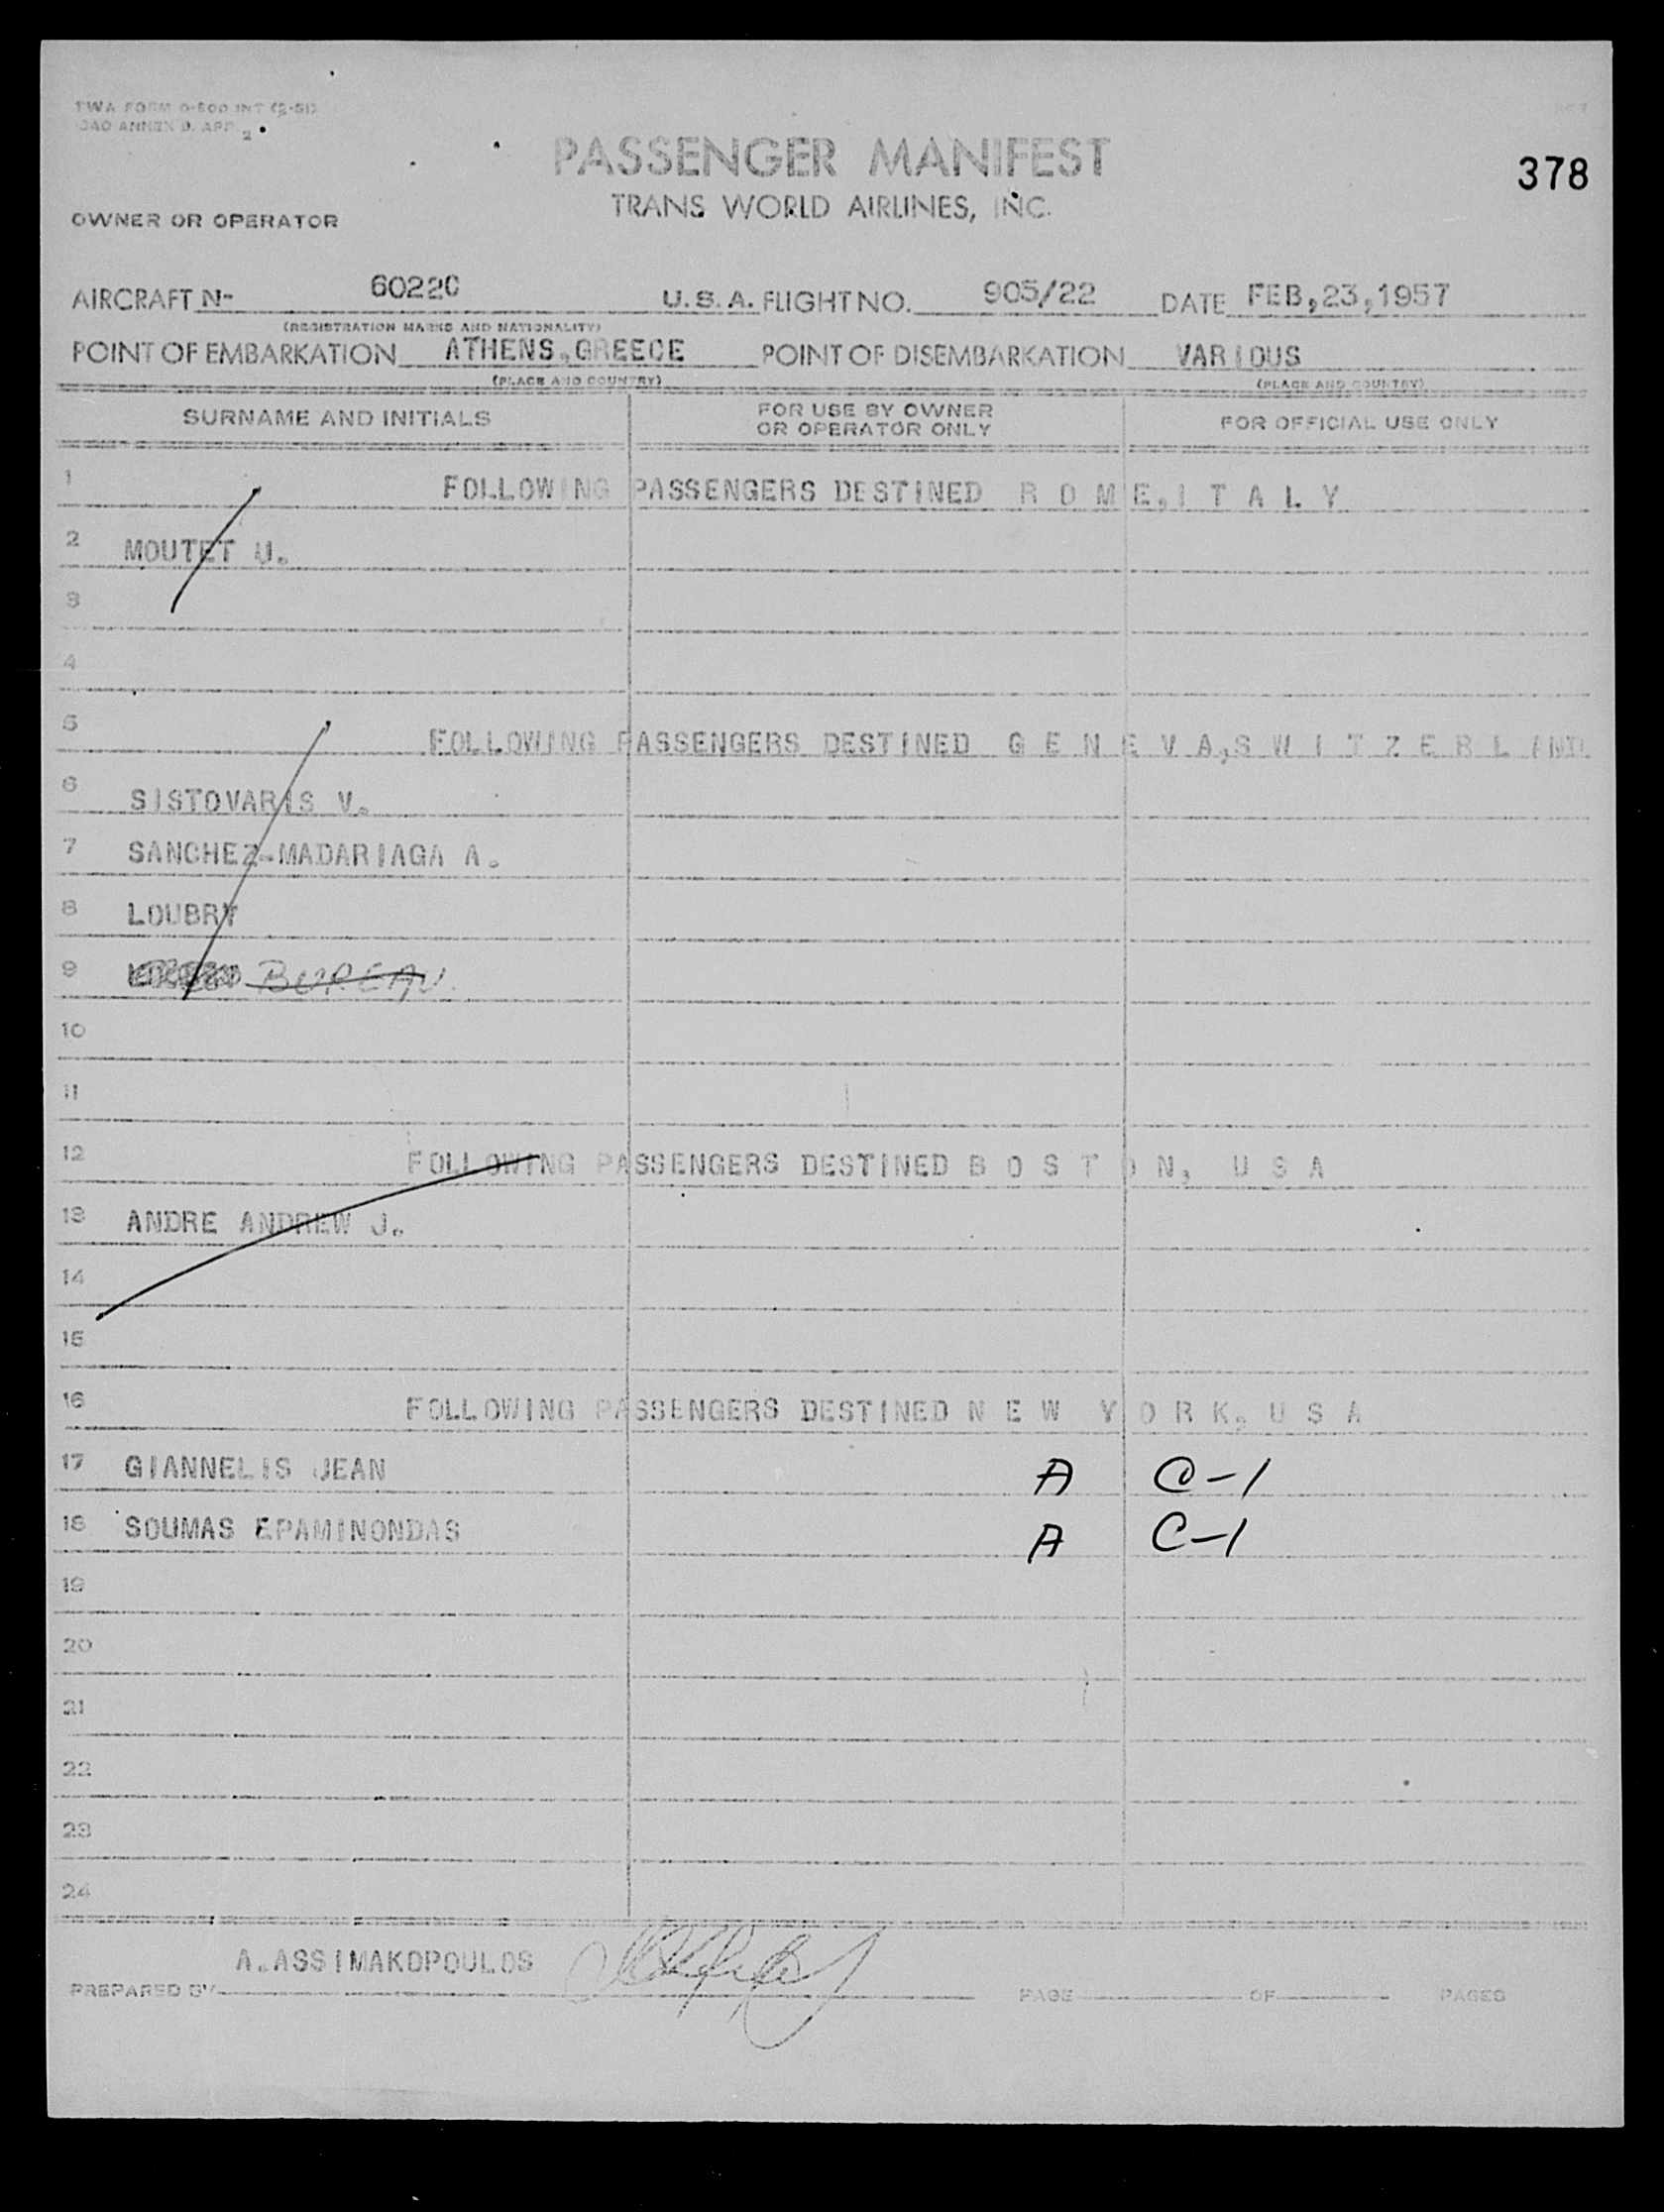 TWA FORM O-500 INT (2-51)
ICAO ANNEX 9, APP. 2
PASSENGER MANIFEST
378
TRANS WORLD AIRLINES, INC.
OWNER OR OPERATOR
AIRCRAFT N- 6022C U.S.A. FLIGHT NO. 905/22 DATE FEB,23,1957
(REGISTRATION MARKS AND NATIONALITY)
POINT OF EMBARKATION ATHENS,GREECE POINT OF DISEMBARKATION VARIOUS
(PLACE AND COUNTRY) (PLACE AND COUNTRY)
SURNAME AND INITIALS FOR USE BY OWNER OR OPERATOR ONLY FOR OFFICIAL USE ONLY
1 FOLLOWING PASSENGERS DESTINED R O M E,I T A L Y
2 MOUTET U.
3
4
5 FOLLOWING PASSENGERS DESTINED G E N E V A,S W I T Z E R L AND
6 SISTOVARIS V.
7 SANCHEZ-MADARIAGA A.
8 LOUBRY
9 BUREAU
10
11
12 FOLLOWING PASSENGERS DESTINED B O S T O N, U S A
13 ANDRE ANDREW J.
14
15
16 FOLLOWING PASSENGERS DESTINED N E W Y O R K, U S A
17 GIANNELIS JEAN A C-1
18 SOUMAS EPAMINONDAS A C-1
19
20
21
22
23
24
A.ASSIMAKOPOULOS
PREPARED BY PAGE OF PAGES